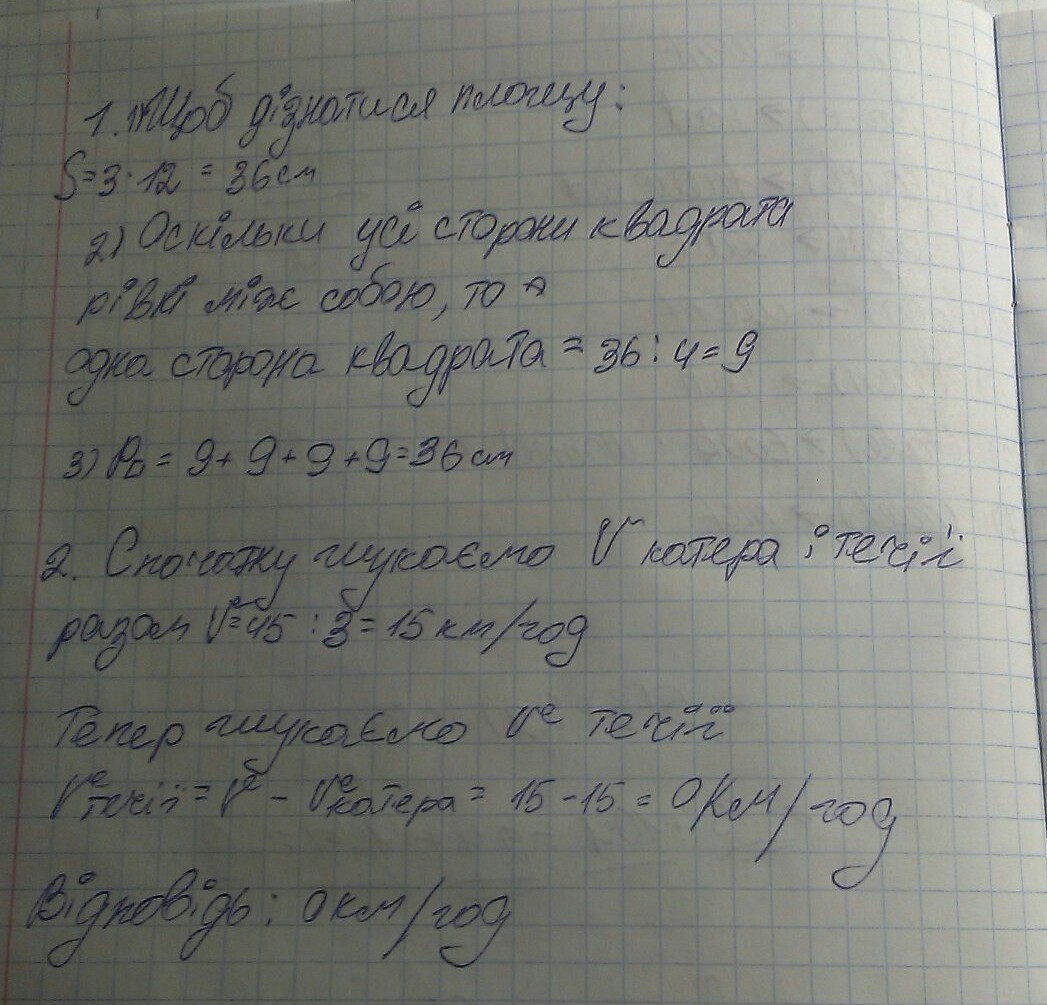 1. 1) Щоб дізнатися площу:
S=3·12 = 36см
2) Оскільки усі сторони квадрата
рівні між собою, то
одна сторона квадрата = 36:4=9
3) P□ = 9+9+9+9=36см
2. Спочатку шукаємо V катера і течії
разом V=45:3=15км/год
Тепер шукаємо V течії
Vтечії = V - Vкатера = 15-15 = 0Км/год
Відповідь: 0км/год